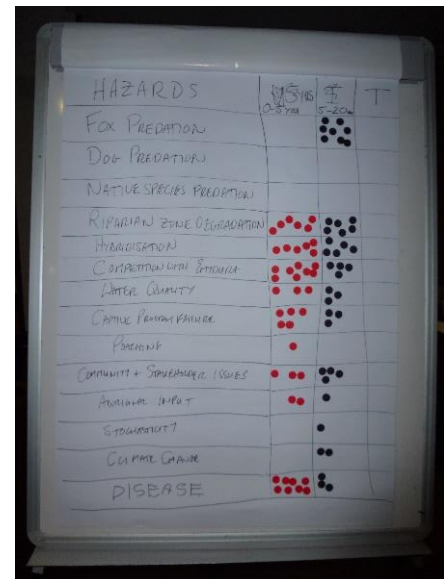 HAZARDS
0-5 YRS 5-20 T
FOX PREDATION
DOG PREDATION
NATIVE SPECIES PREDATION
RIPARIAN ZONE DEGRADATION
HYBRIDISATION
COMPETITION WITH EMYDURA
WATER QUALITY
CAPTIVE PROGRAM FAILURE
POACHING
COMMUNITY + STAKEHOLDER ISSUES
ABORIGINAL INPUT
STOCHASTICITY
CLIMATE CHANGE
DISEASE